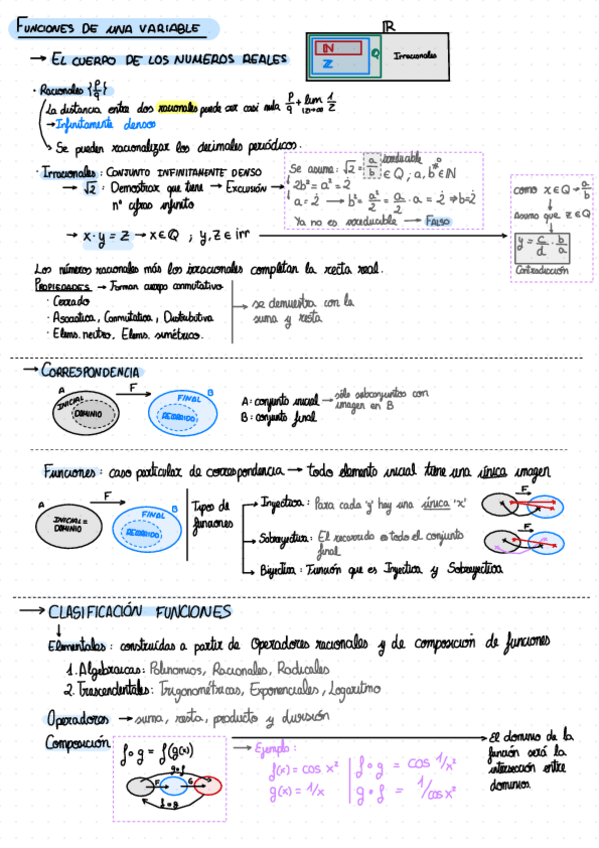 FUNCIONES DE UNA VARIABLE
→ EL CUERPO DE LOS NUMEROS REALES
IR
IN
Z
Q
Irracionales
· Racionales {p/q}
La distancia entre dos racionales puede ser casi nula p/q + lim 1/z
→ Infinitamente densos
Se pueden racionalizar los decimales periódicos.
· Irracionales: CONJUNTO INFINITAMENTE DENSO
→ √2 : Demostrar que tiene → EXCLUSIÓN →
nº cifras infinito
Se asume: √2 = a/b ∈ Q ; a, b ∈ IN
irreducible
2b² = a² = 2̇
a = 2̇ → b² = a²/2 = a/2 · a = 2̇ ⇒ b = 2̇
Ya no es irreducible → FALSO
→ x · y = Z → x ∈ Q ; y, Z ∈ irr
como x ∈ Q → a/b
Asumo que z ∈ Q
y = c/d · b/a
Contradicción
Los números racionales más los irracionales completan la recta real.
PROPIEDADES → Forman cuerpo conmutativo
· Cerrado
· Asociativa, Conmutativa, Distributiva
· Elem. neutro, Elem. simétrico.
→ se demuestra con la
suma y resta
→ CORRESPONDENCIA
A
F
B
INICIAL
DOMINIO
FINAL
RECORRIDO
A: conjunto inicial → sólo subconjuntos con
imagen en B
B: conjunto final
Funciones: caso particular de correspondencia → todo elemento inicial tiene una única imagen
A
F
B
INICIAL =
DOMINIO
FINAL
RECORRIDO
Tipos de
funciones
→ Inyectiva: Para cada 'y' hay una única 'x'
F
→ Sobreyectiva: El recorrido es todo el conjunto
final
F
→ Biyectiva: Función que es Inyectiva y Sobreyectiva
→ CLASIFICACIÓN FUNCIONES
Elementales: construídas a partir de Operadores racionales y de composición de funciones
1. Algebraicas: Polinomios, Racionales, Radicales
2. Trascendentales: Trigonométricas, Exponenciales, Logaritmo
Operadores → suma, resta, producto y división
Composición
f∘g = f(g(x))
g∘f
F
G
f∘g
→ Ejemplo:
f(x) = cos x²
g(x) = 1/x
f∘g = cos 1/x²
g∘f = 1/cos x²
→ El dominio de la
función será la
intersección entre
dominios.